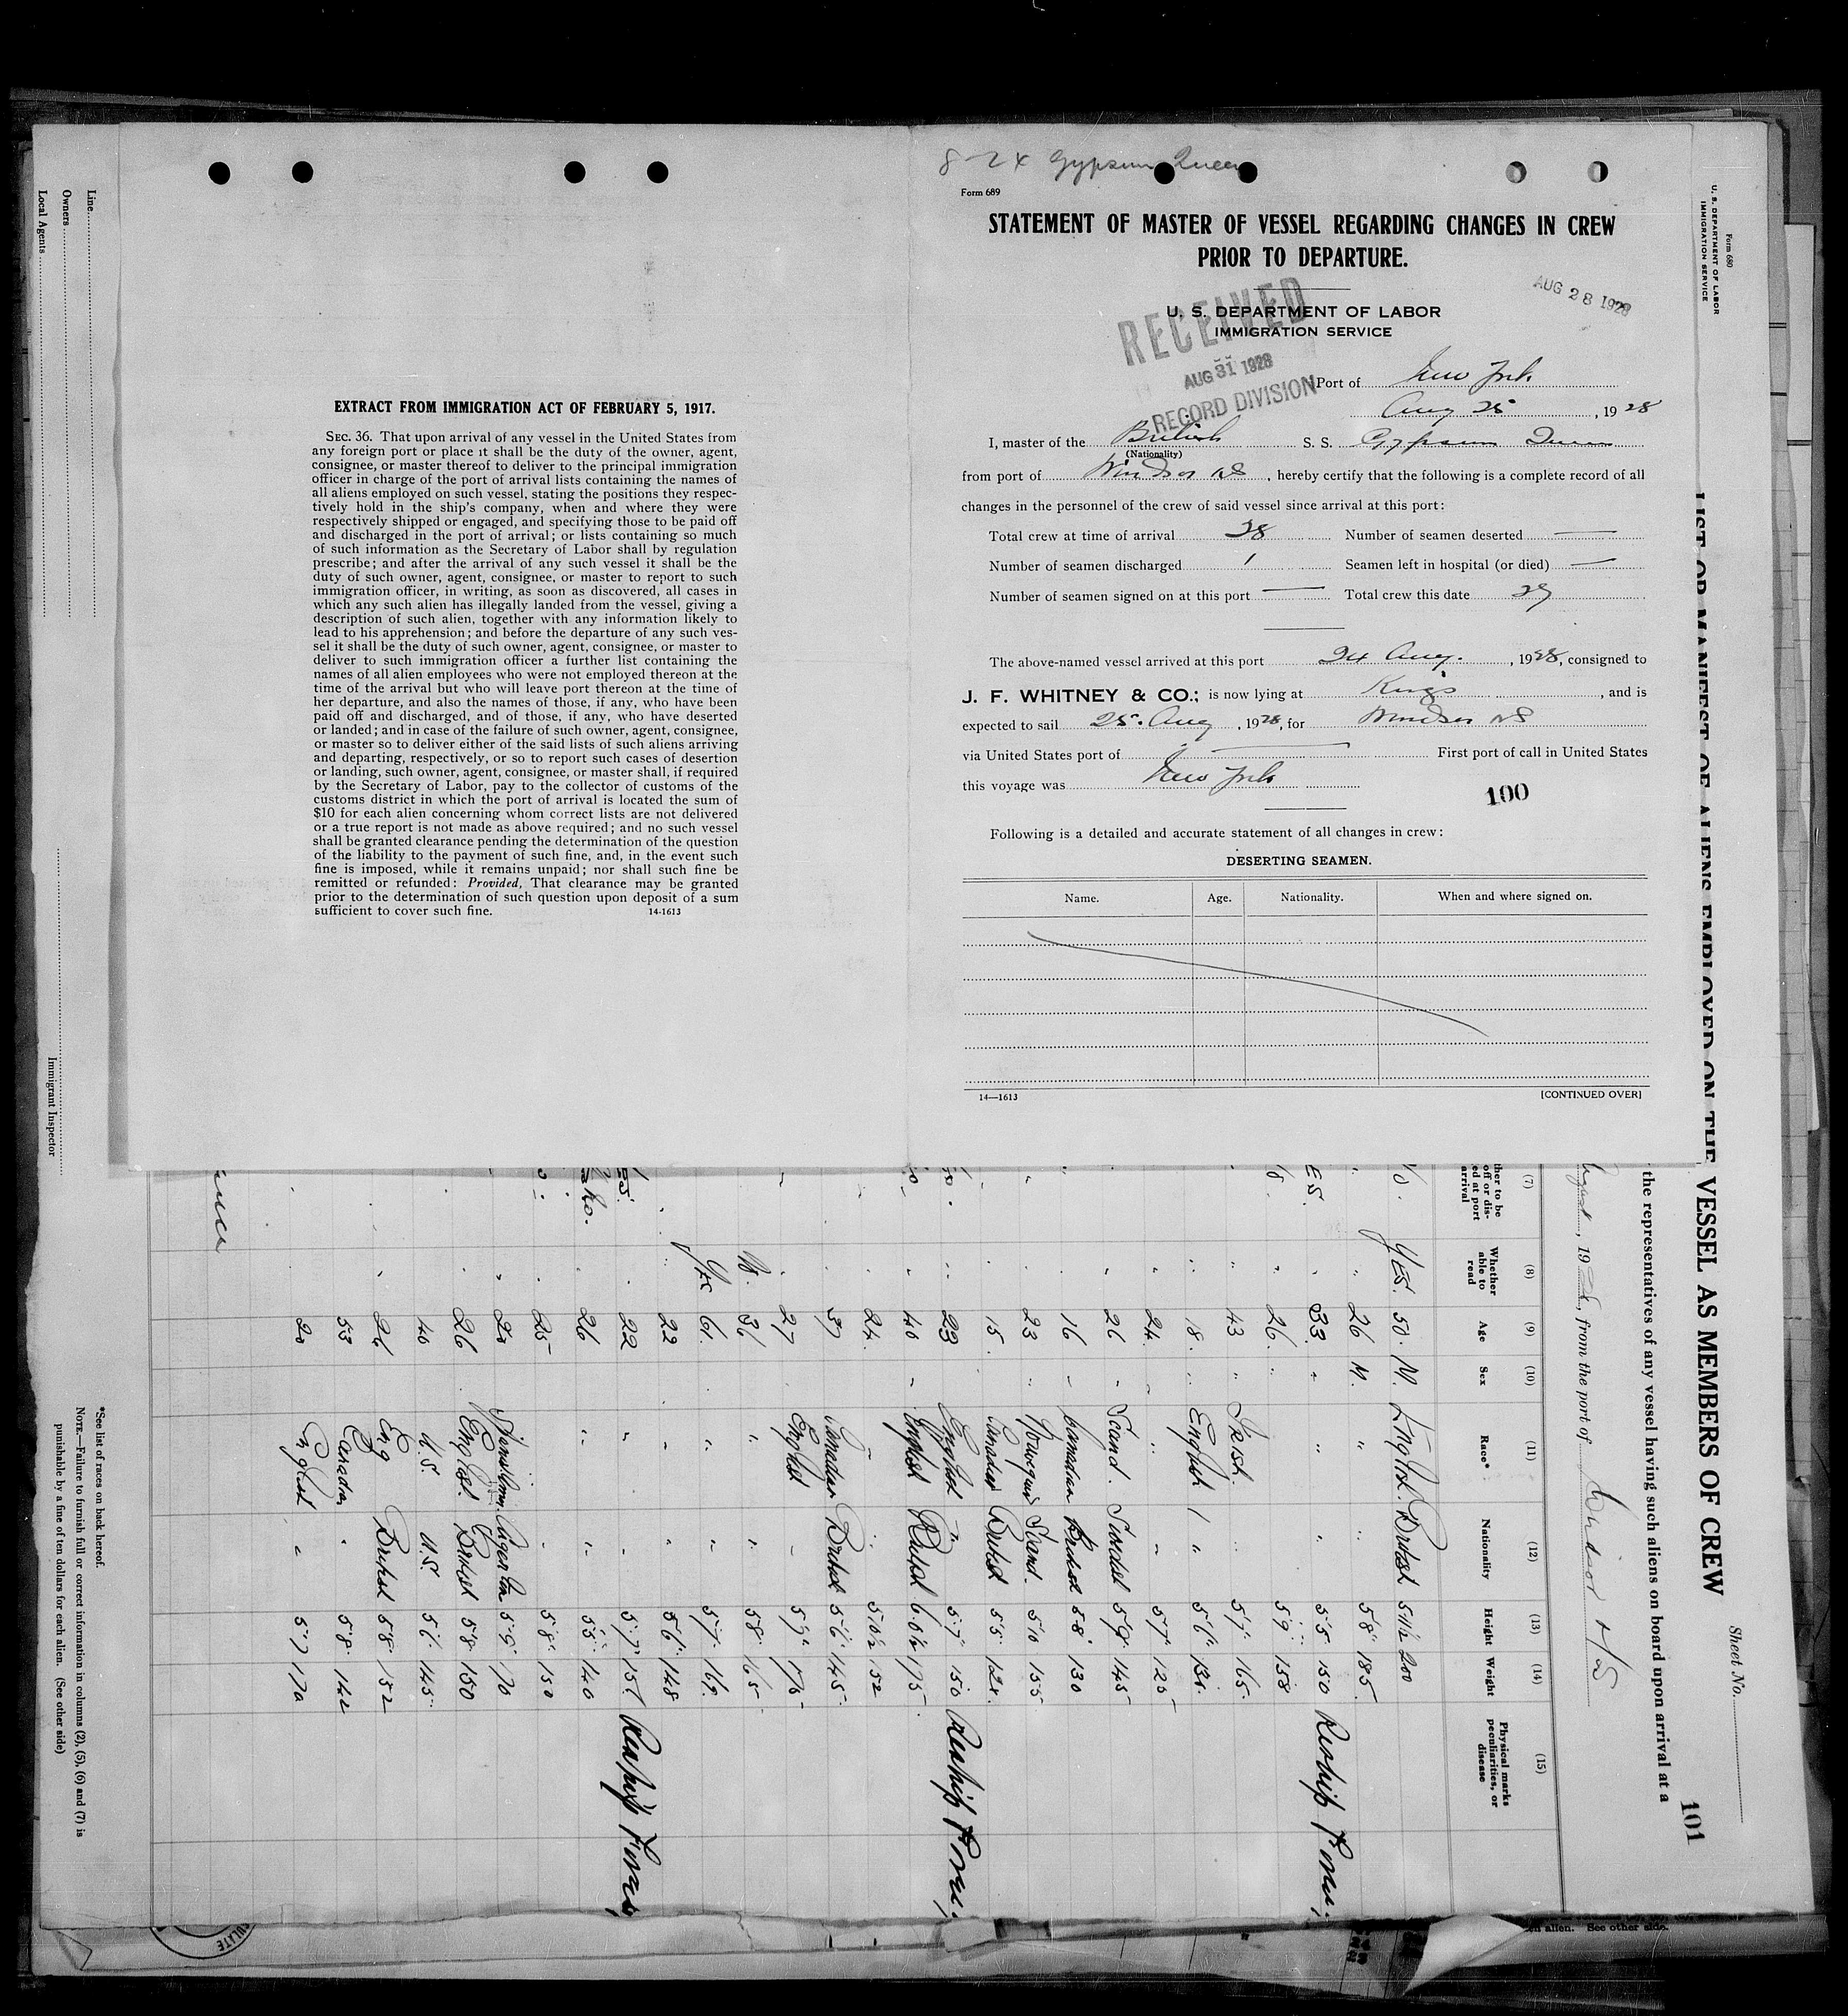 8-24 Gypsum Queen
Form 689
STATEMENT OF MASTER OF VESSEL REGARDING CHANGES IN CREW
PRIOR TO DEPARTURE.
AUG 28 1928
U. S. DEPARTMENT OF LABOR
IMMIGRATION SERVICE
RECEIVED
AUG 31 1928
RECORD DIVISION
Port of New York
Aug 25, 1928
I, master of the British S. S. Gypsum Queen
(Nationality)
from port of Windsor NS, hereby certify that the following is a complete record of all
changes in the personnel of the crew of said vessel since arrival at this port:
Total crew at time of arrival 28 Number of seamen deserted —
Number of seamen discharged 1 Seamen left in hospital (or died) —
Number of seamen signed on at this port — Total crew this date 27
The above-named vessel arrived at this port 24 Aug., 1928, consigned to
J. F. WHITNEY & CO.; is now lying at Kings, and is
expected to sail 25. Aug, 1928, for Windsor NS
via United States port of — First port of call in United States
this voyage was New York
100
Following is a detailed and accurate statement of all changes in crew:
DESERTING SEAMEN.
Name. Age. Nationality. When and where signed on.
14—1613 [CONTINUED OVER]
EXTRACT FROM IMMIGRATION ACT OF FEBRUARY 5, 1917.
SEC. 36. That upon arrival of any vessel in the United States from
any foreign port or place it shall be the duty of the owner, agent,
consignee, or master thereof to deliver to the principal immigration
officer in charge of the port of arrival lists containing the names of
all aliens employed on such vessel, stating the positions they respec-
tively hold in the ship's company, when and where they were
respectively shipped or engaged, and specifying those to be paid off
and discharged in the port of arrival; or lists containing so much
of such information as the Secretary of Labor shall by regulation
prescribe; and after the arrival of any such vessel it shall be the
duty of such owner, agent, consignee, or master to report to such
immigration officer, in writing, as soon as discovered, all cases in
which any such alien has illegally landed from the vessel, giving a
description of such alien, together with any information likely to
lead to his apprehension; and before the departure of any such ves-
sel it shall be the duty of such owner, agent, consignee, or master to
deliver to such immigration officer a further list containing the
names of all alien employees who were not employed thereon at the
time of the arrival but who will leave port thereon at the time of
her departure, and also the names of those, if any, who have been
paid off and discharged, and of those, if any, who have deserted
or landed; and in case of the failure of such owner, agent, consignee,
or master so to deliver either of the said lists of such aliens arriving
and departing, respectively, or so to report such cases of desertion
or landing, such owner, agent, consignee, or master shall, if required
by the Secretary of Labor, pay to the collector of customs of the
customs district in which the port of arrival is located the sum of
$10 for each alien concerning whom correct lists are not delivered
or a true report is not made as above required; and no such vessel
shall be granted clearance pending the determination of the question
of the liability to the payment of such fine, and, in the event such
fine is imposed, while it remains unpaid; nor shall such fine be
remitted or refunded: Provided, That clearance may be granted
prior to the determination of such question upon deposit of a sum
sufficient to cover such fine. 14-1613
Form 680
U. S. DEPARTMENT OF LABOR
IMMIGRATION SERVICE
Sheet No.
101
LIST OR MANIFEST OF ALIENS EMPLOYED ON THE VESSEL AS MEMBERS OF CREW
the representatives of any vessel having such aliens on board upon arrival at a
, 19 , from the port of Windsor N.S.
(7) (8) (9) (10) (11) (12) (13) (14) (15)
Whether able to read Age Sex Race* Nationality Height Weight Physical marks peculiarities, or disease
YES. 50. M. English. British 5 11½ 200
" 26 M. " " 5 8 185
33 " " " 5 5 150
26 " 5 9 158
43 " Irish. " 5 7 165
18 " English " 5 6 134
24 " " " 5 7 125
26 " Scand. Swedish 5 9 145
16 " Canadian British 5 8 130
23 " Norwegian Scand. 5 10 155
15 Canadian British 5 5 124
23 English " 5 7 150
40 " English British 6.0½ 175
24 " " 5 10½ 152
37 Canadian British 5 6 145
27 English " 5 9 175
No. 36 " " 5 8 165
Yes 61 " " 5 7 169
22 " " 5 6 148
22 " " 5 7 151
26 " " 5 5 140
25 " 5 8 150
20 5 9 170
26 English. British 5 8 150
40 U.S. U.S. 5 6 145
26 Eng British 5 8 152
53 Canada " 5 8 142
20 English " 5 7 170
*See list of races on back hereof.
NOTE.—Failure to furnish full or correct information in columns (2), (5), (6) and (7) is
punishable by a fine of ten dollars for each alien. (See other side)
Line
Owners
Local Agents
Immigrant Inspector
en alien. See other side.